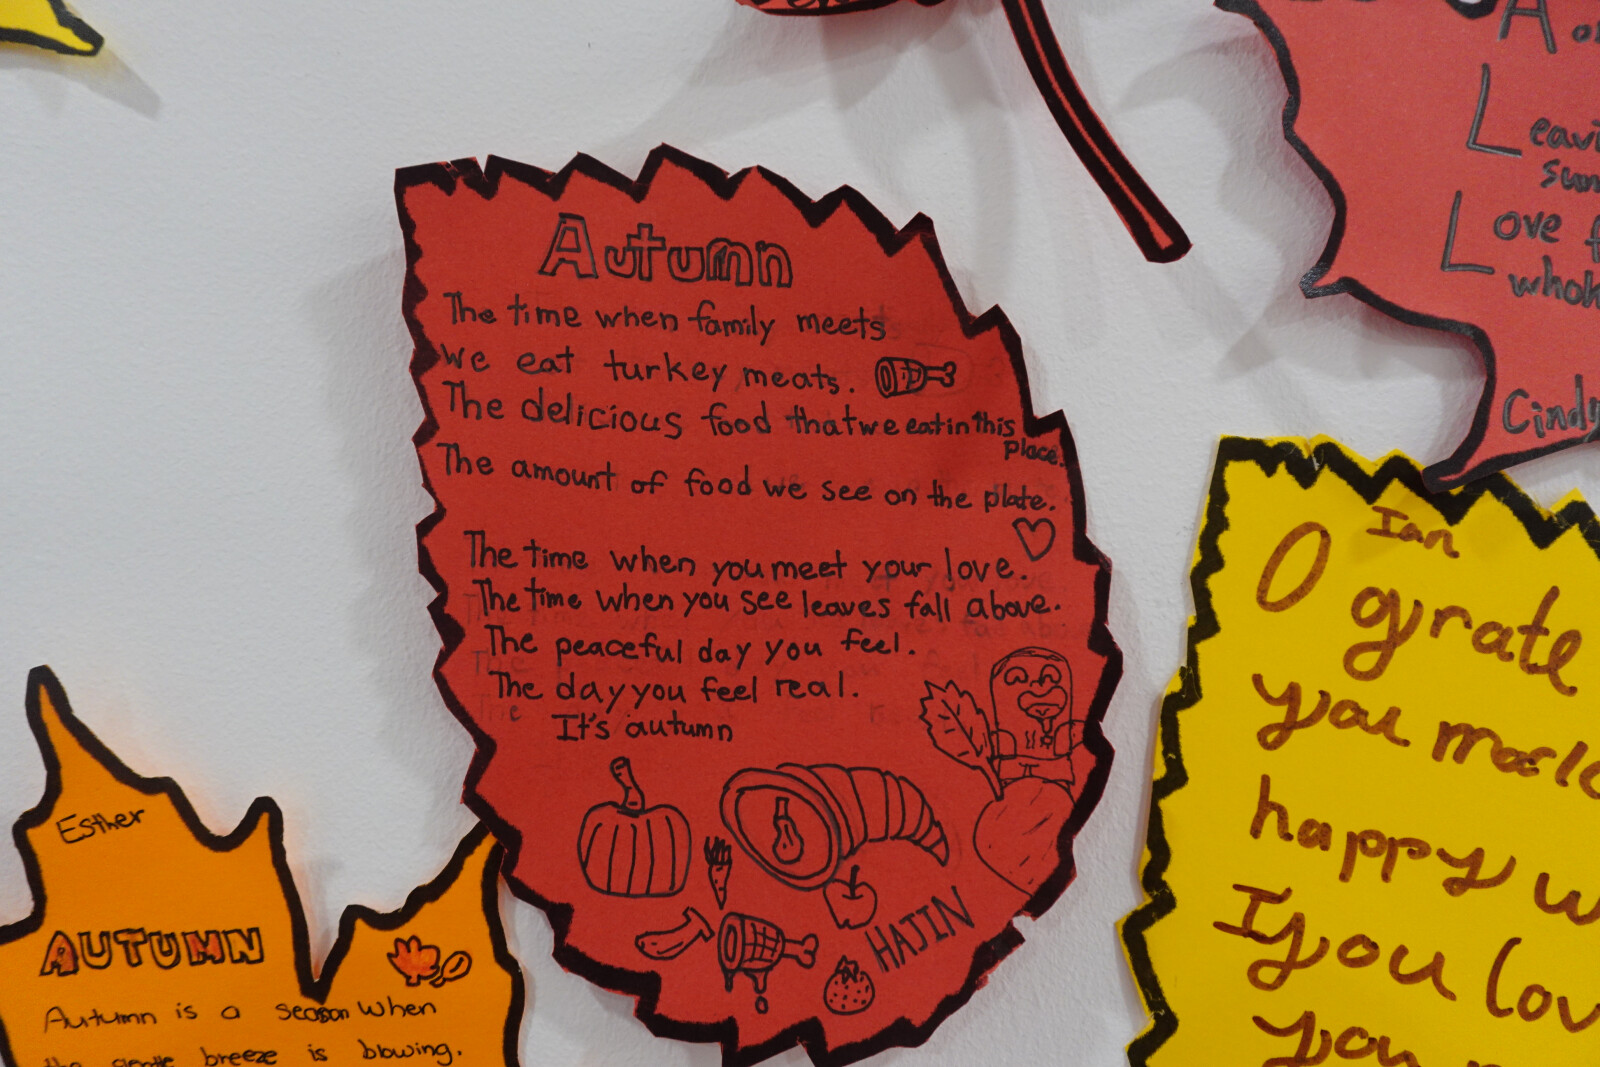 Autumn
The time when family meets
we eat turkey meats.
The delicious food that we eat in this
place.
The amount of food we see on the plate.
The time when you meet your love.
The time when you see leaves fall above.
The peaceful day you feel.
The day you feel real.
It's autumn
HAJIN
Esther
AUTUMN
Autumn is a season when
the gentle breeze is blowing.
A
L
sun
Love
whol
Cindy
Ian
O grate
you
happy w
If you lov
you